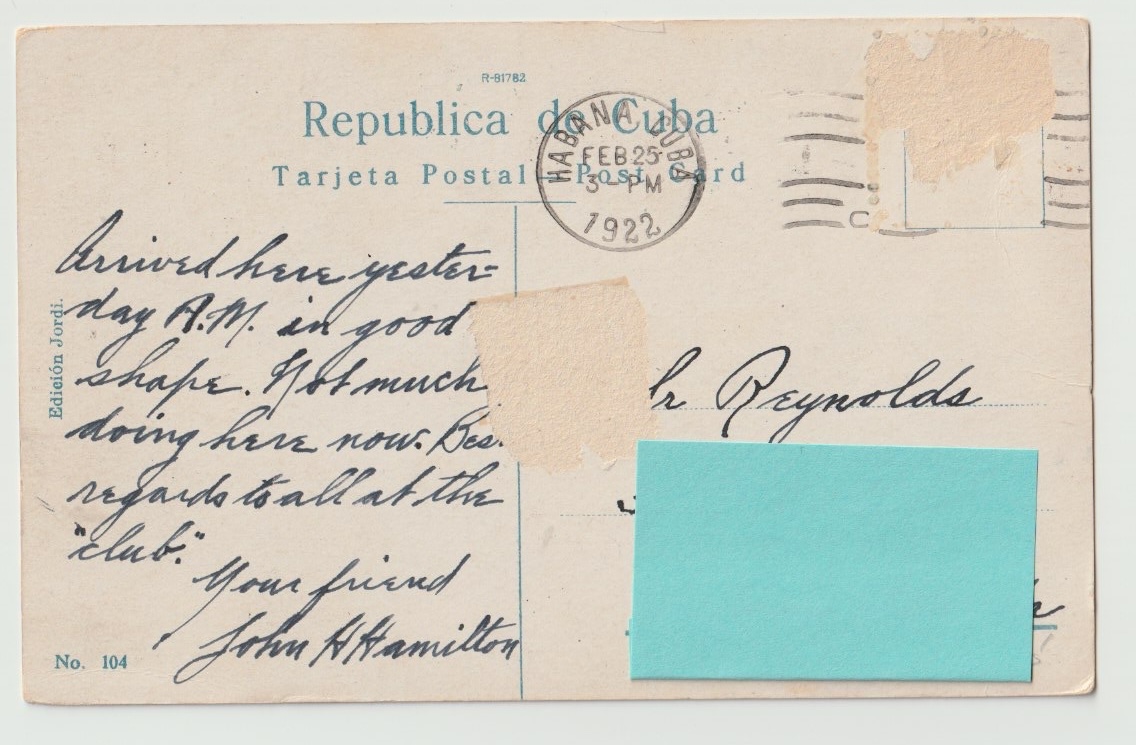 R-81782
Republica de Cuba
Tarjeta Postal — Post Card
HABANA CUBA
FEB 25
3 - PM
1922
Arrived here yester=
day A.M. in good
shape. Not much
doing here now. Bes
regards to all at the
"club."
Your friend
John H Hamilton
Reynolds
Edición Jordi.
No. 104